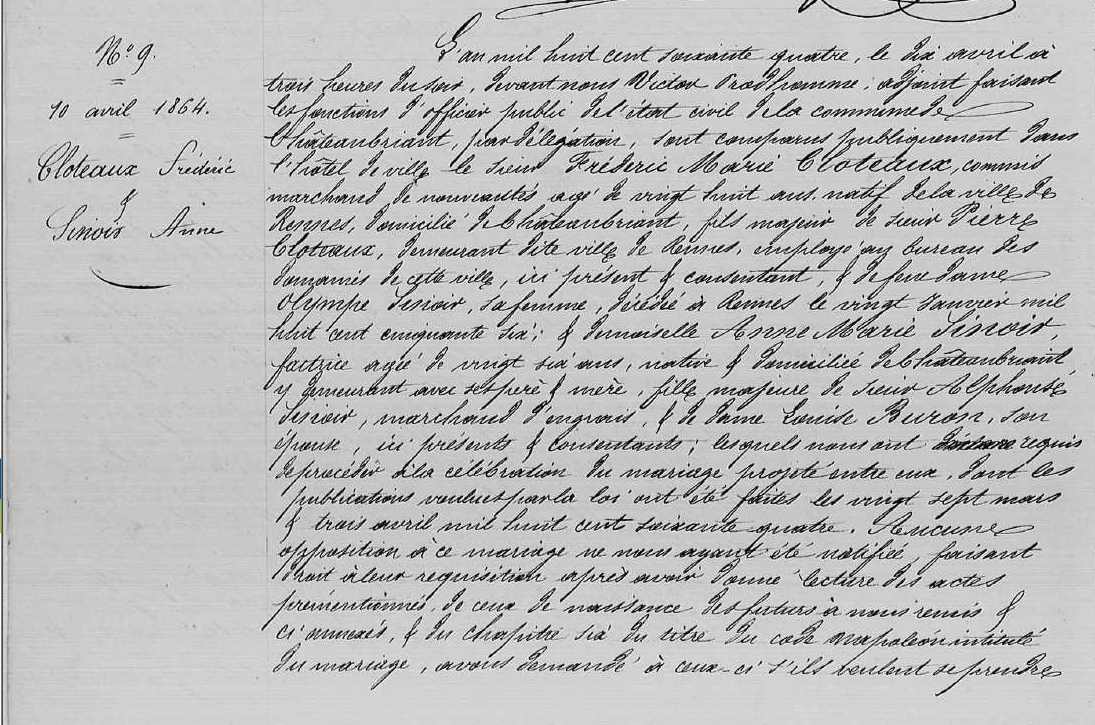 N.° 9.
10 avril 1864.
Cloteaux Frédéric
&
Sinoir Anne
L'an mil huit cent soixante quatre, le dix avril à
trois heures du soir, devant nous Victor Prodhomme, adjoint faisant
les fonctions d'officier public de l'état civil de la commune de
Châteaubriant, par délégation, sont comparus publiquement dans
l'hôtel de ville le sieur Fréderic Marie Cloteaux, commis
marchand de nouveautés agé de vingt huit ans, natif de la ville de
Rennes, domicilié de Châteaubriant, fils majeur de sieur Pierre
Cloteaux, demeurant dite ville de Rennes, employé au bureau des
domaines de cette ville, ici présent & consentant, & de feue dame
Olympe Sinoir, sa femme, décédée à Rennes le vingt Janvier mil
huit cent cinquante six; & demoiselle Anne Marie Sinoir,
factrice agée de vingt six ans, native & domiciliée de Châteaubriant
y demeurant avec ses père & mère, fille majeure de sieur Alphonse
Sinoir, marchand d'engrais, & de dame Louise Buron, son
épouse, ici présents & consentants; lesquels nous ont requis
de procéder à la célébration du mariage projeté entre eux, dont les
publications voulues par la loi ont été faites les vingt sept mars
& trois avril mil huit cent soixante quatre. Aucune
opposition à ce mariage ne nous ayant été notifiée, faisant
droit à leur requisition après avoir donné lecture des actes
prémentionnés, de ceux de naissance des futurs à nous remis &
ci annexés, & du chapitre six du titre du code Napoléon intitulé
du mariage, avons demandé à ceux-ci s'ils veulent se prendre